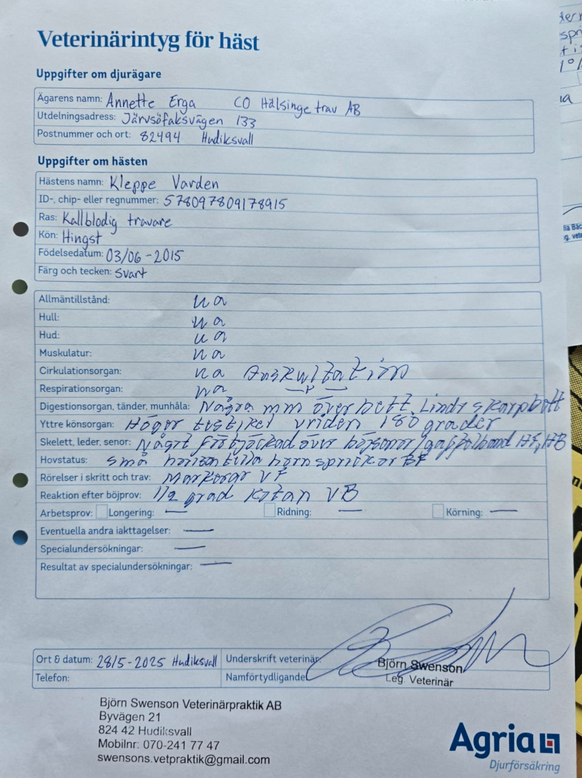 Veterinärintyg för häst
Uppgifter om djurägare
Ägarens namn: Annette Erga CO Hälsinge trav AB
Utdelningsadress: Järvsöfaksvägen 133
Postnummer och ort: 82494 Hudiksvall
Uppgifter om hästen
Hästens namn: Kleppe Varden
ID-, chip- eller regnummer: 578097809178915
Ras: Kallblodig travare
Kön: Hingst
Födelsedatum: 03/06-2015
Färg och tecken: Svart
Allmäntillstånd: ua
Hull: ua
Hud: ua
Muskulatur: ua
Cirkulationsorgan: ua Auskultation
Respirationsorgan: ua
Digestionsorgan, tänder, munhåla: Några mm överbett. Lindr skarpbett
Yttre könsorgan: Höger testikel vriden 180 grader
Skelett, leder, senor: Något förtjockad över böjsenor/gaffelband HF, HB
Hovstatus: små horisontella hornsprickor BF
Rörelser i skritt och trav: Markerar VF
Reaktion efter böjprov: 1/2 grad kotan VB
Arbetsprov: Longering: — Ridning: — Körning: —
Eventuella andra iakttagelser: —
Specialundersökningar: —
Resultat av specialundersökningar: —
Ort & datum: 28/5-2025 Hudiksvall Underskrift veterinär:
Björn Swenson
Telefon: Namförtydligande
Leg Veterinär
Björn Swenson Veterinärpraktik AB
Byvägen 21
824 42 Hudiksvall
Mobilnr: 070-241 77 47
swensons.vetpraktik@gmail.com
Agria
Djurförsäkring